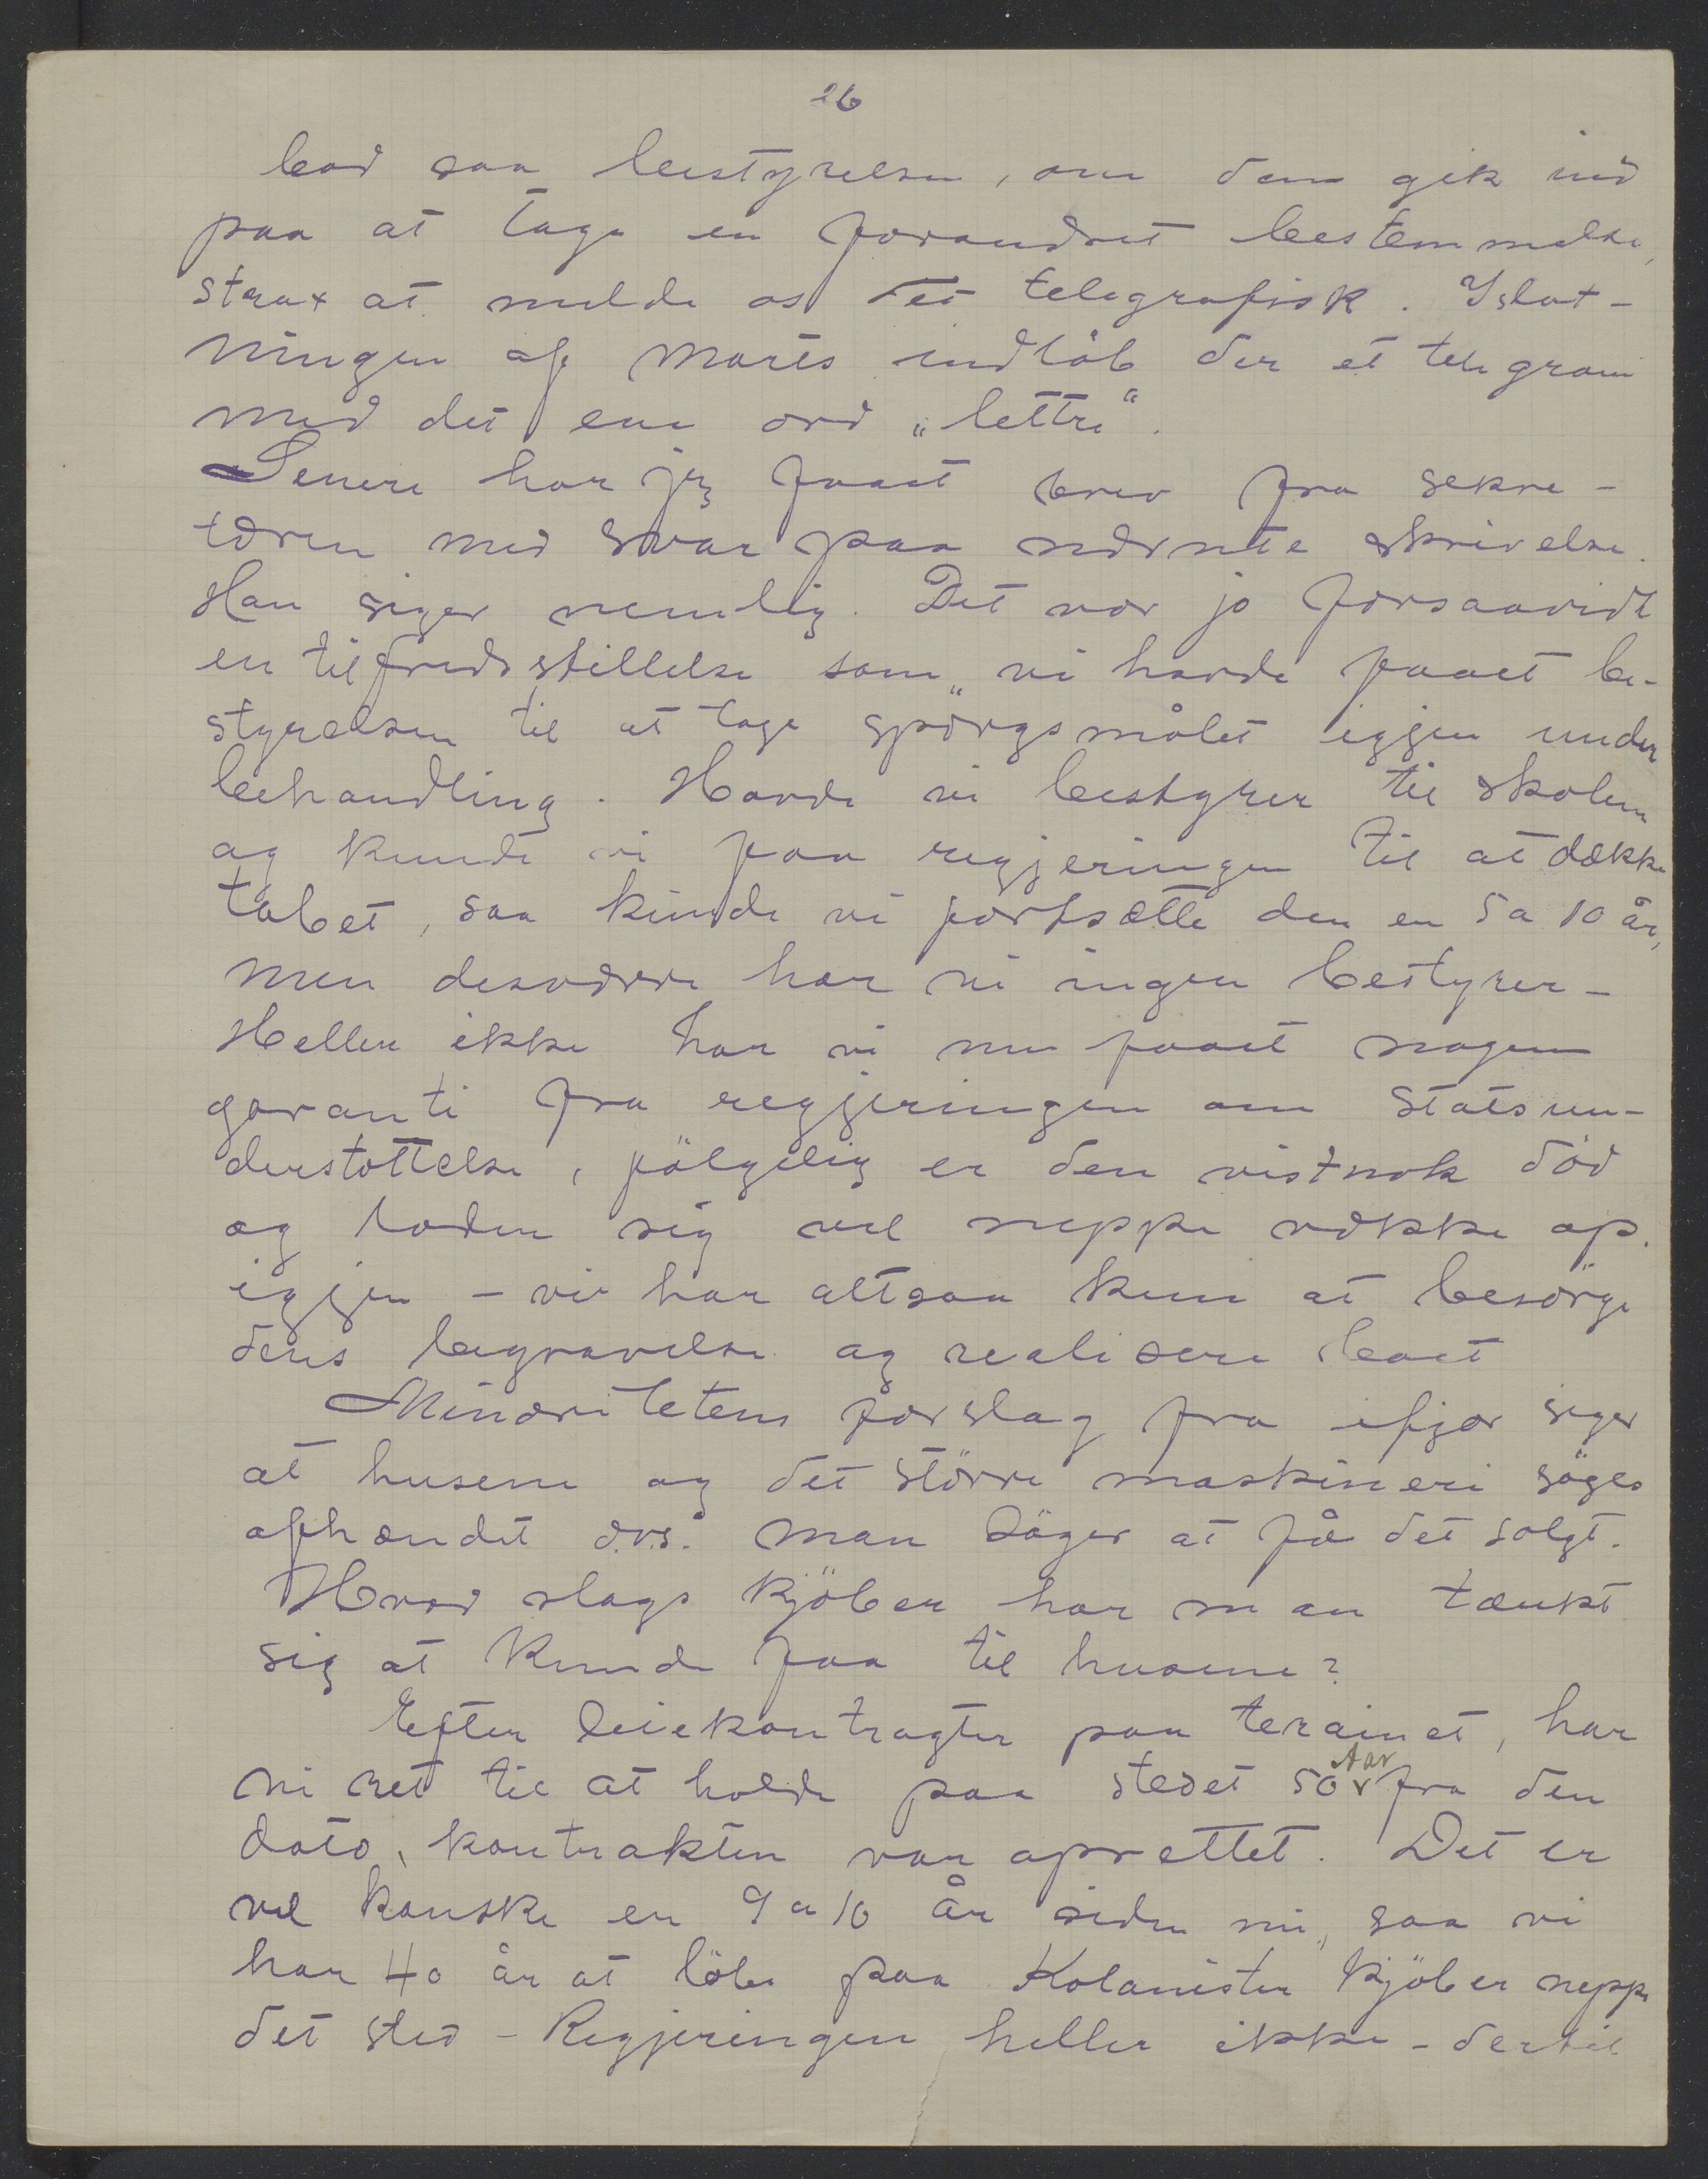 26
bad saa bestyrelsen, om den gik ind
paa at tage en forandret bestemmelse,
strax at melde os det telegrafisk. I slut-
ningen af marts indløb der et telegram
med det ene ord „lettre“.
Senere har jeg faaet brev fra sekre-
tæren med svar paa nævnte skrivelse.
Han siger nemlig. Det var jo forsaavidt
en tilfredsstillelse som „vi havde faaet be-
styrelsen til at tage spørgsmålet iggjen under
behandling. Havde vi bestyrer til skolen
og kunde vi faa regjeringen til at dække
tabet, saa kunde vi fortsætte den en 5 a 10 år,
men desværre har vi ingen bestyrer -
Heller ikke har vi nu faaet nogen
garanti fra regjeringen om statsun-
derstøttelse, følgelig er den vistnok död
og lader sig vel neppe vække op
iggjen - vi har altsaa kun at besörge
dens begravelse og realisere boet
Minoritetens forslag fra ifjor siger
at husene og det större maskineri söges
afhændet d.v.s. man söger at få det solgt.
Hvad slags kjöber har man tænkt
sig at kunde faa til husene?
Efter leiekontragter paa terainet, har
vi ret til at holde paa stedet 50 Aar fra den
dato, kontrakten var oprettet. Det er
vel kanske en 9 a 10 år siden nu, saa vi
har 40 år at löbe paa. Kolonister kjöber neppe
det sted - Regjeringen heller ikke - dertil